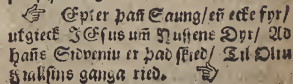 Epter þañ Saung/ eñ ecke fyr/
utgieck JEsus um Nussens Dyr/ Ad
hañs Sidveniu er þad skied/ Til Oliu
Fiallsins ganga ried.